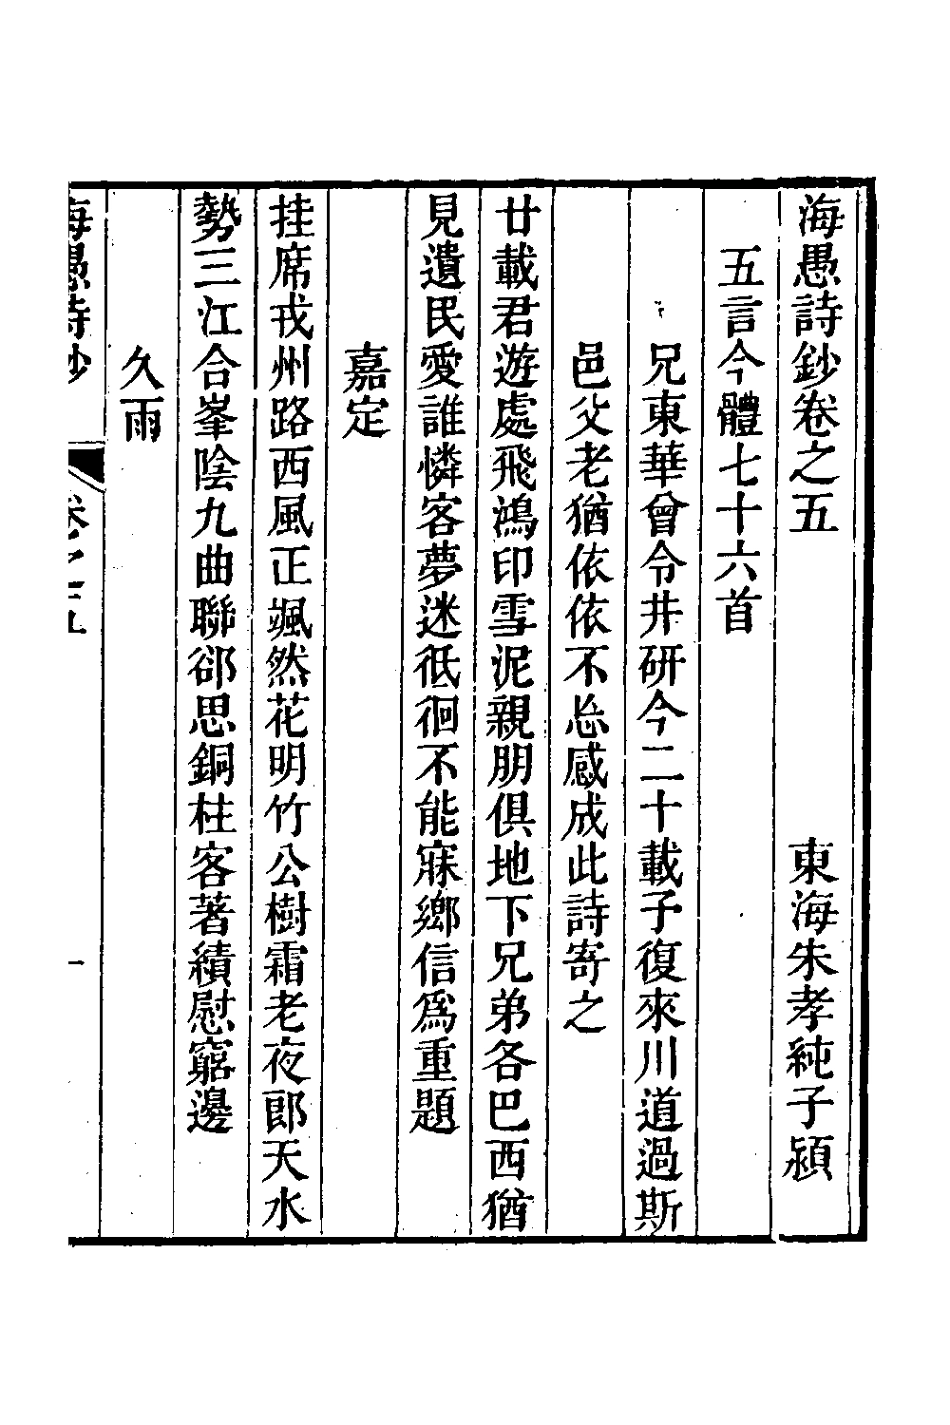 海愚詩鈔卷之五　東海朱孝純子潁
五言今體七十六首
兄東華曾令井研今二十載子復來川道過斯
邑父老猶依依不忘感成此詩寄之
廿載君遊處飛鴻印雪泥親朋俱地下兄弟各巴西猶
見遺民愛誰憐客夢迷徘徊不能寐鄉信爲重題
嘉定
挂席戎州路西風正颯然花明竹公樹霜老夜郎天水
勢三江合峯陰九曲聯郤思銅柱客著績慰窮邊
久雨
海愚詩鈔　卷之五　一